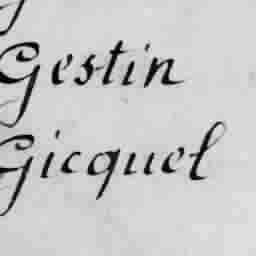 Gestin
Gicquel